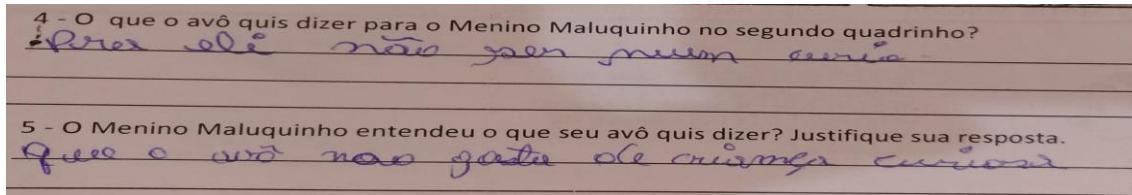 4 - O que o avô quis dizer para o Menino Maluquinho no segundo quadrinho?
ele não ser
5 - O Menino Maluquinho entendeu o que seu avô quis dizer? Justifique sua resposta.
Que o avô nao gosta de criança curiosa